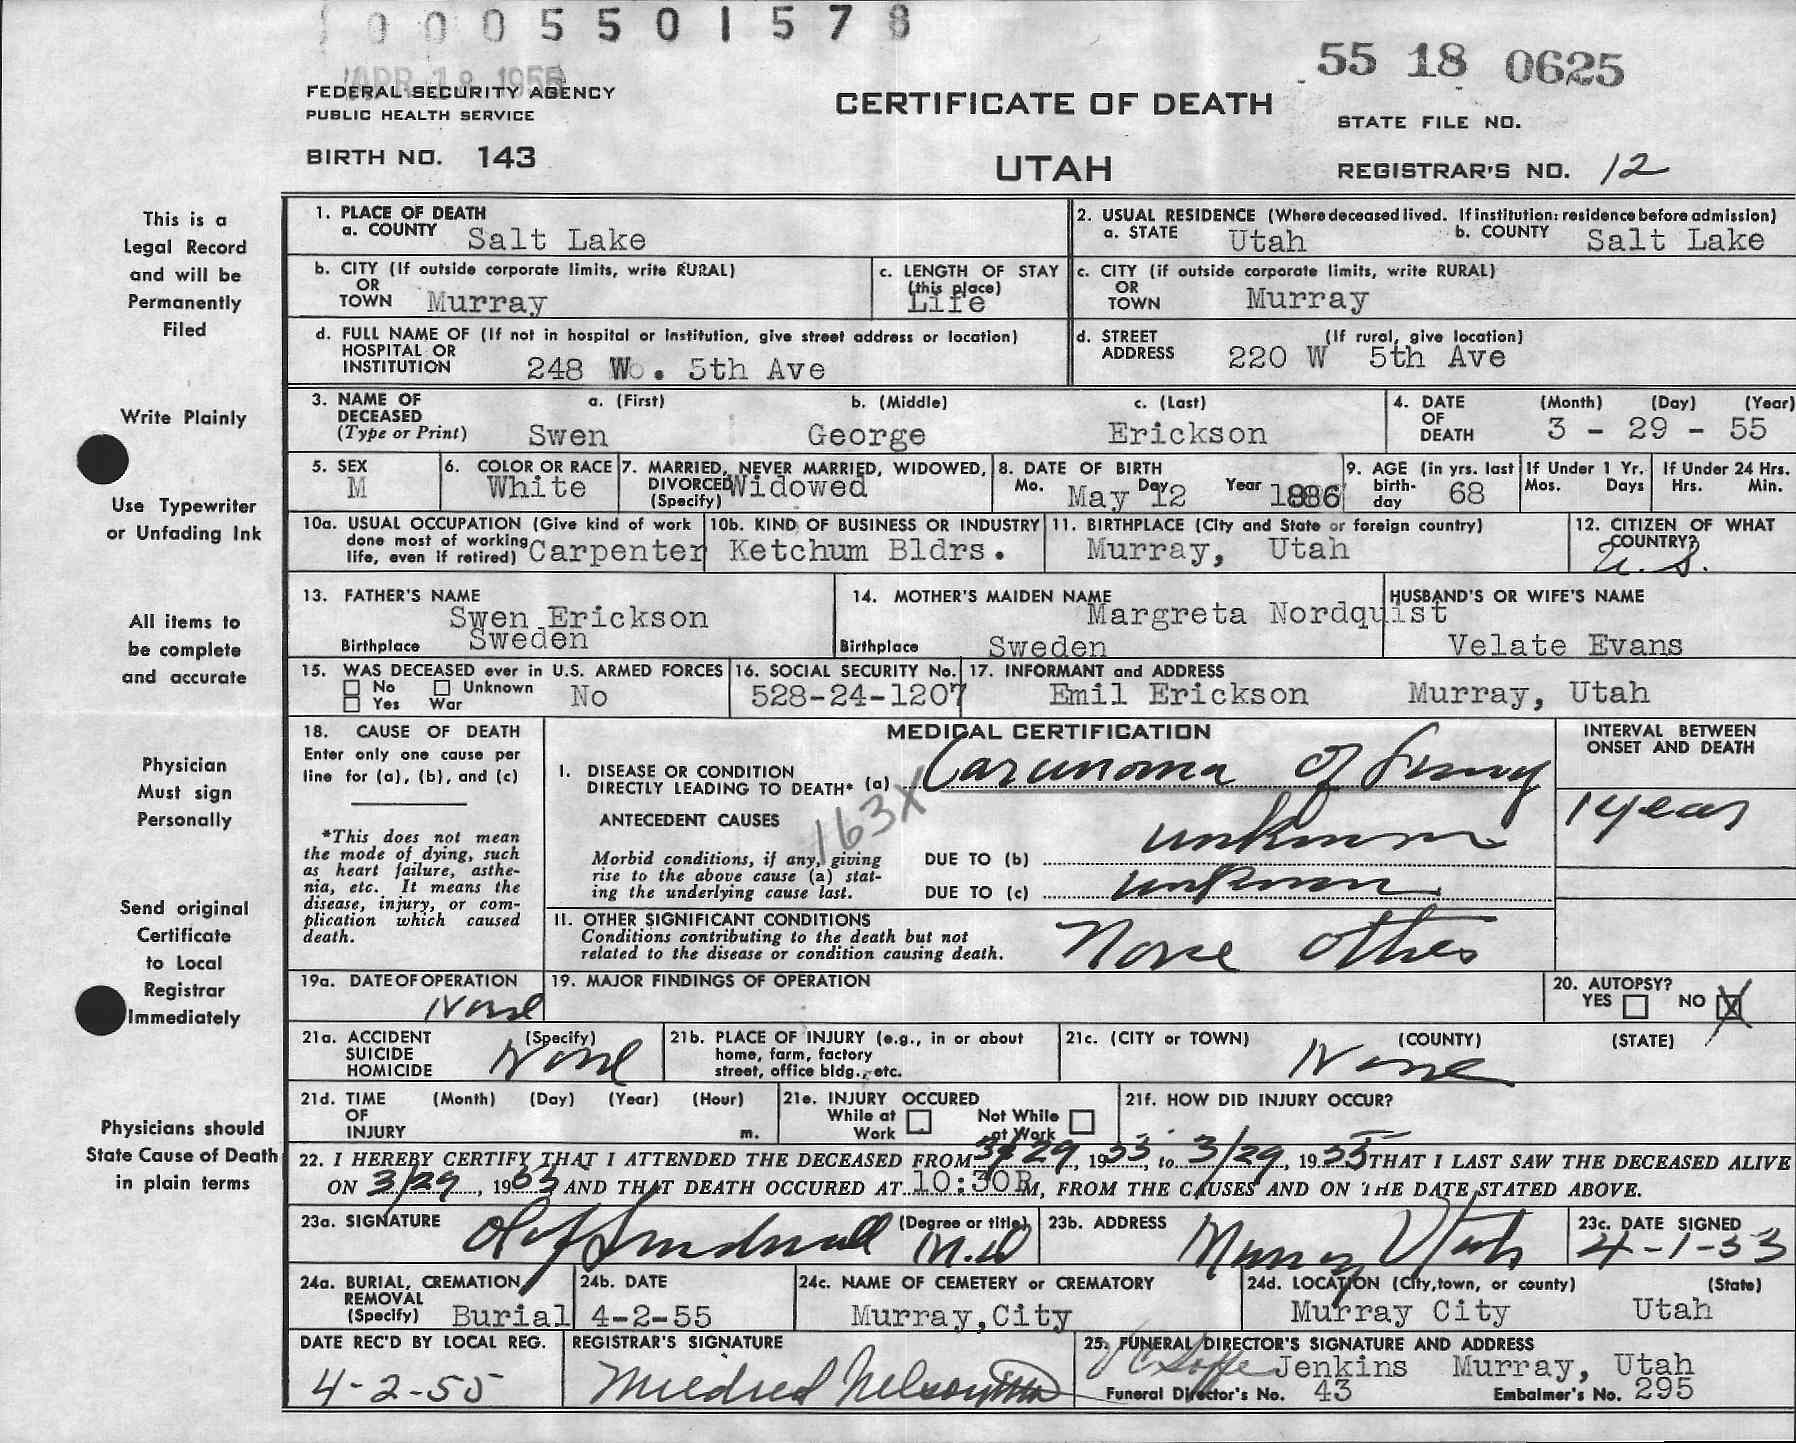 0 0 0 5 5 0 1 5 7 8
APR 18 1955
55 18 0625
FEDERAL SECURITY AGENCY
PUBLIC HEALTH SERVICE
CERTIFICATE OF DEATH
STATE FILE NO.
BIRTH NO. 143
UTAH
REGISTRAR'S NO. 12
This is a
Legal Record
and will be
Permanently
Filed
Write Plainly
Use Typewriter
or Unfading Ink
All items to
be complete
and accurate
Physician
Must sign
Personally
Send original
Certificate
to Local
Registrar
Immediately
Physicians should
State Cause of Death
in plain terms
1. PLACE OF DEATH
a. COUNTY Salt Lake
2. USUAL RESIDENCE (Where deceased lived. If institution: residence before admission)
a. STATE Utah b. COUNTY Salt Lake
b. CITY (If outside corporate limits, write RURAL)
OR
TOWN Murray
c. LENGTH OF STAY
(this place)
Life
c. CITY (if outside corporate limits, write RURAL)
OR
TOWN Murray
d. FULL NAME OF (If not in hospital or institution, give street address or location)
HOSPITAL OR
INSTITUTION 248 Wo. 5th Ave
d. STREET (If rural, give location)
ADDRESS 220 W 5th Ave
3. NAME OF a. (First) b. (Middle) c. (Last)
DECEASED
(Type or Print) Swen George Erickson
4. DATE (Month) (Day) (Year)
OF
DEATH 3 - 29 - 55
5. SEX
M
6. COLOR OR RACE
White
7. MARRIED, NEVER MARRIED, WIDOWED,
DIVORCED Widowed
(Specify)
8. DATE OF BIRTH
Mo. May Day 12 Year 1886
9. AGE (in yrs. last
birth-
day 68
If Under 1 Yr.
Mos. Days
If Under 24 Hrs.
Hrs. Min.
10a. USUAL OCCUPATION (Give kind of work
done most of working
life, even if retired) Carpenter
10b. KIND OF BUSINESS OR INDUSTRY
Ketchum Bldrs.
11. BIRTHPLACE (City and State or foreign country)
Murray, Utah
12. CITIZEN OF WHAT
COUNTRY?
U. S.
13. FATHER'S NAME
Swen Erickson
Birthplace Sweden
14. MOTHER'S MAIDEN NAME
Margreta Nordquist
Birthplace Sweden
HUSBAND'S OR WIFE'S NAME
Velate Evans
15. WAS DECEASED ever in U.S. ARMED FORCES
No Unknown No
Yes War
16. SOCIAL SECURITY No.
528-24-1207
17. INFORMANT and ADDRESS
Emil Erickson Murray, Utah
18. CAUSE OF DEATH
Enter only one cause per
line for (a), (b), and (c)
*This does not mean
the mode of dying, such
as heart failure, asthe-
nia, etc. It means the
disease, injury, or com-
plication which caused
death.
MEDICAL CERTIFICATION
I. DISEASE OR CONDITION
DIRECTLY LEADING TO DEATH* (a) Carcinoma of Lung
163X
ANTECEDENT CAUSES
Morbid conditions, if any, giving
rise to the above cause (a) stat-
ing the underlying cause last.
DUE TO (b) unknown
DUE TO (c) unknown
INTERVAL BETWEEN
ONSET AND DEATH
1 year
II. OTHER SIGNIFICANT CONDITIONS
Conditions contributing to the death but not
related to the disease or condition causing death.
None other
19a. DATE OF OPERATION
None
19. MAJOR FINDINGS OF OPERATION
20. AUTOPSY?
YES NO X
21a. ACCIDENT (Specify)
SUICIDE
HOMICIDE None
21b. PLACE OF INJURY (e.g., in or about
home, farm, factory
street, office bldg., etc.
21c. (CITY or TOWN) (COUNTY) (STATE)
None
21d. TIME (Month) (Day) (Year) (Hour)
OF
INJURY m.
21e. INJURY OCCURED
While at Not While
Work at Work
21f. HOW DID INJURY OCCUR?
22. I HEREBY CERTIFY THAT I ATTENDED THE DECEASED FROM 3/29, 1955, to 3/29, 1955 THAT I LAST SAW THE DECEASED ALIVE
ON 3/29, 1955 AND THAT DEATH OCCURED AT 10:30P M, FROM THE CAUSES AND ON THE DATE STATED ABOVE.
23a. SIGNATURE (Degree or title)
M.D
23b. ADDRESS Murray Utah
23c. DATE SIGNED
4-1-55
24a. BURIAL, CREMATION
REMOVAL
(Specify) Burial
24b. DATE
4-2-55
24c. NAME OF CEMETERY or CREMATORY
Murray,City
24d. LOCATION (City,town, or county) (State)
Murray City Utah
DATE REC'D BY LOCAL REG.
4-2-55
REGISTRAR'S SIGNATURE
Mildred Nelson
25. FUNERAL DIRECTOR'S SIGNATURE AND ADDRESS
Jenkins Murray, Utah
Funeral Director's No. 43 Embalmer's No. 295